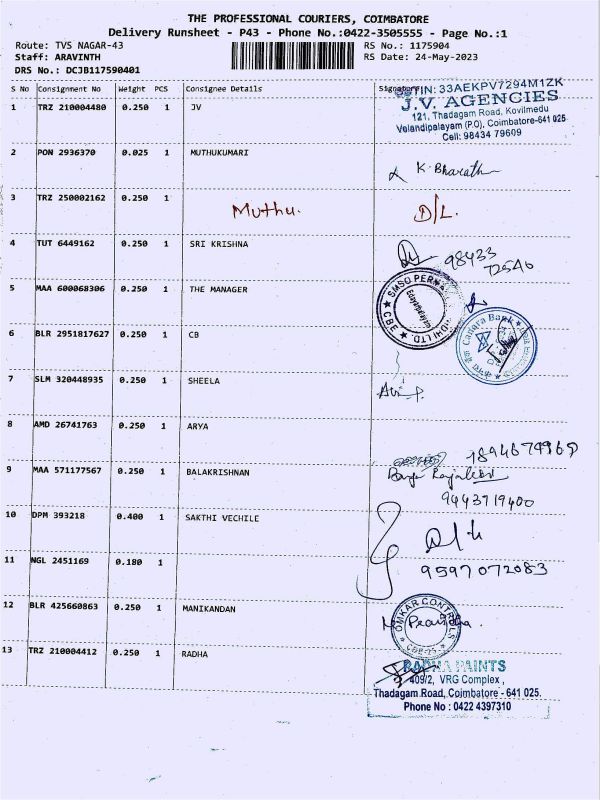 THE PROFESSIONAL COURIERS, COIMBATORE
Delivery Runsheet - P43 - Phone No.:0422-3505555 - Page No.:1
Route: TVS NAGAR-43 RS No.: 1175904
Staff: ARAVINTH RS Date: 24-May-2023
DRS No.: DCJB117590401
S No Consignment No Weight PCS Consignee Details Signature
GSTIN: 33AEKPV7294M1ZK
1 TRZ 210004480 0.250 1 JV J.V. AGENCIES
121, Thadagam Road, Kovilmedu
Velandipalayam (P.O), Coimbatore-641 025
Cell: 98434 79609
2 PON 2936370 0.025 1 MUTHUKUMARI
K. Bharath
3 TRZ 250002162 0.250 1
Muthu. D/L.
4 TUT 6449162 0.250 1 SRI KRISHNA
98433
72540
5 MAA 600068306 0.250 1 THE MANAGER
SMSO PERMA
CBE
Canara Bank
6 BLR 2951817627 0.250 1 CB
7 SLM 320448935 0.250 1 SHEELA
8 AMD 26741763 0.250 1 ARYA
9 MAA 571177567 0.250 1 BALAKRISHNAN
9443719400
10 DPM 393218 0.400 1 SAKTHI VECHILE
11 NGL 2451169 0.180 1
9597072083
12 BLR 425660863 0.250 1 MANIKANDAN
OMKAR CONTROLS
CBE-25
13 TRZ 210004412 0.250 1 RADHA
RADHA PAINTS
409/2, VRG Complex,
Thadagam Road, Coimbatore - 641 025.
Phone No : 0422 4397310